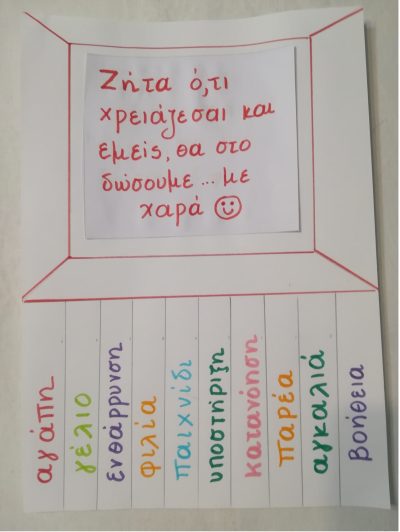 Ζήτα ό,τι
χρειάζεσαι και
εμείς, θα στο
δώσουμε... με
χαρά
αγάπη
γέλιο
ενθάρρυνση
φιλία
παιχνίδι
υποστήριξη
κατανόηση
παρέα
αγκαλιά
βοήθεια